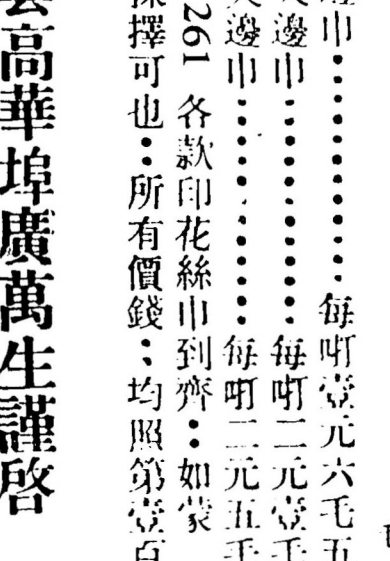 邊巾……每呏壹元六毛五
邊巾……每呏二元壹毛
邊巾……每呏二元五毛
261 各款印花絲巾到齊：如蒙
採擇可也：所有價錢：均照第壹百
雲高華埠廣萬生謹啓